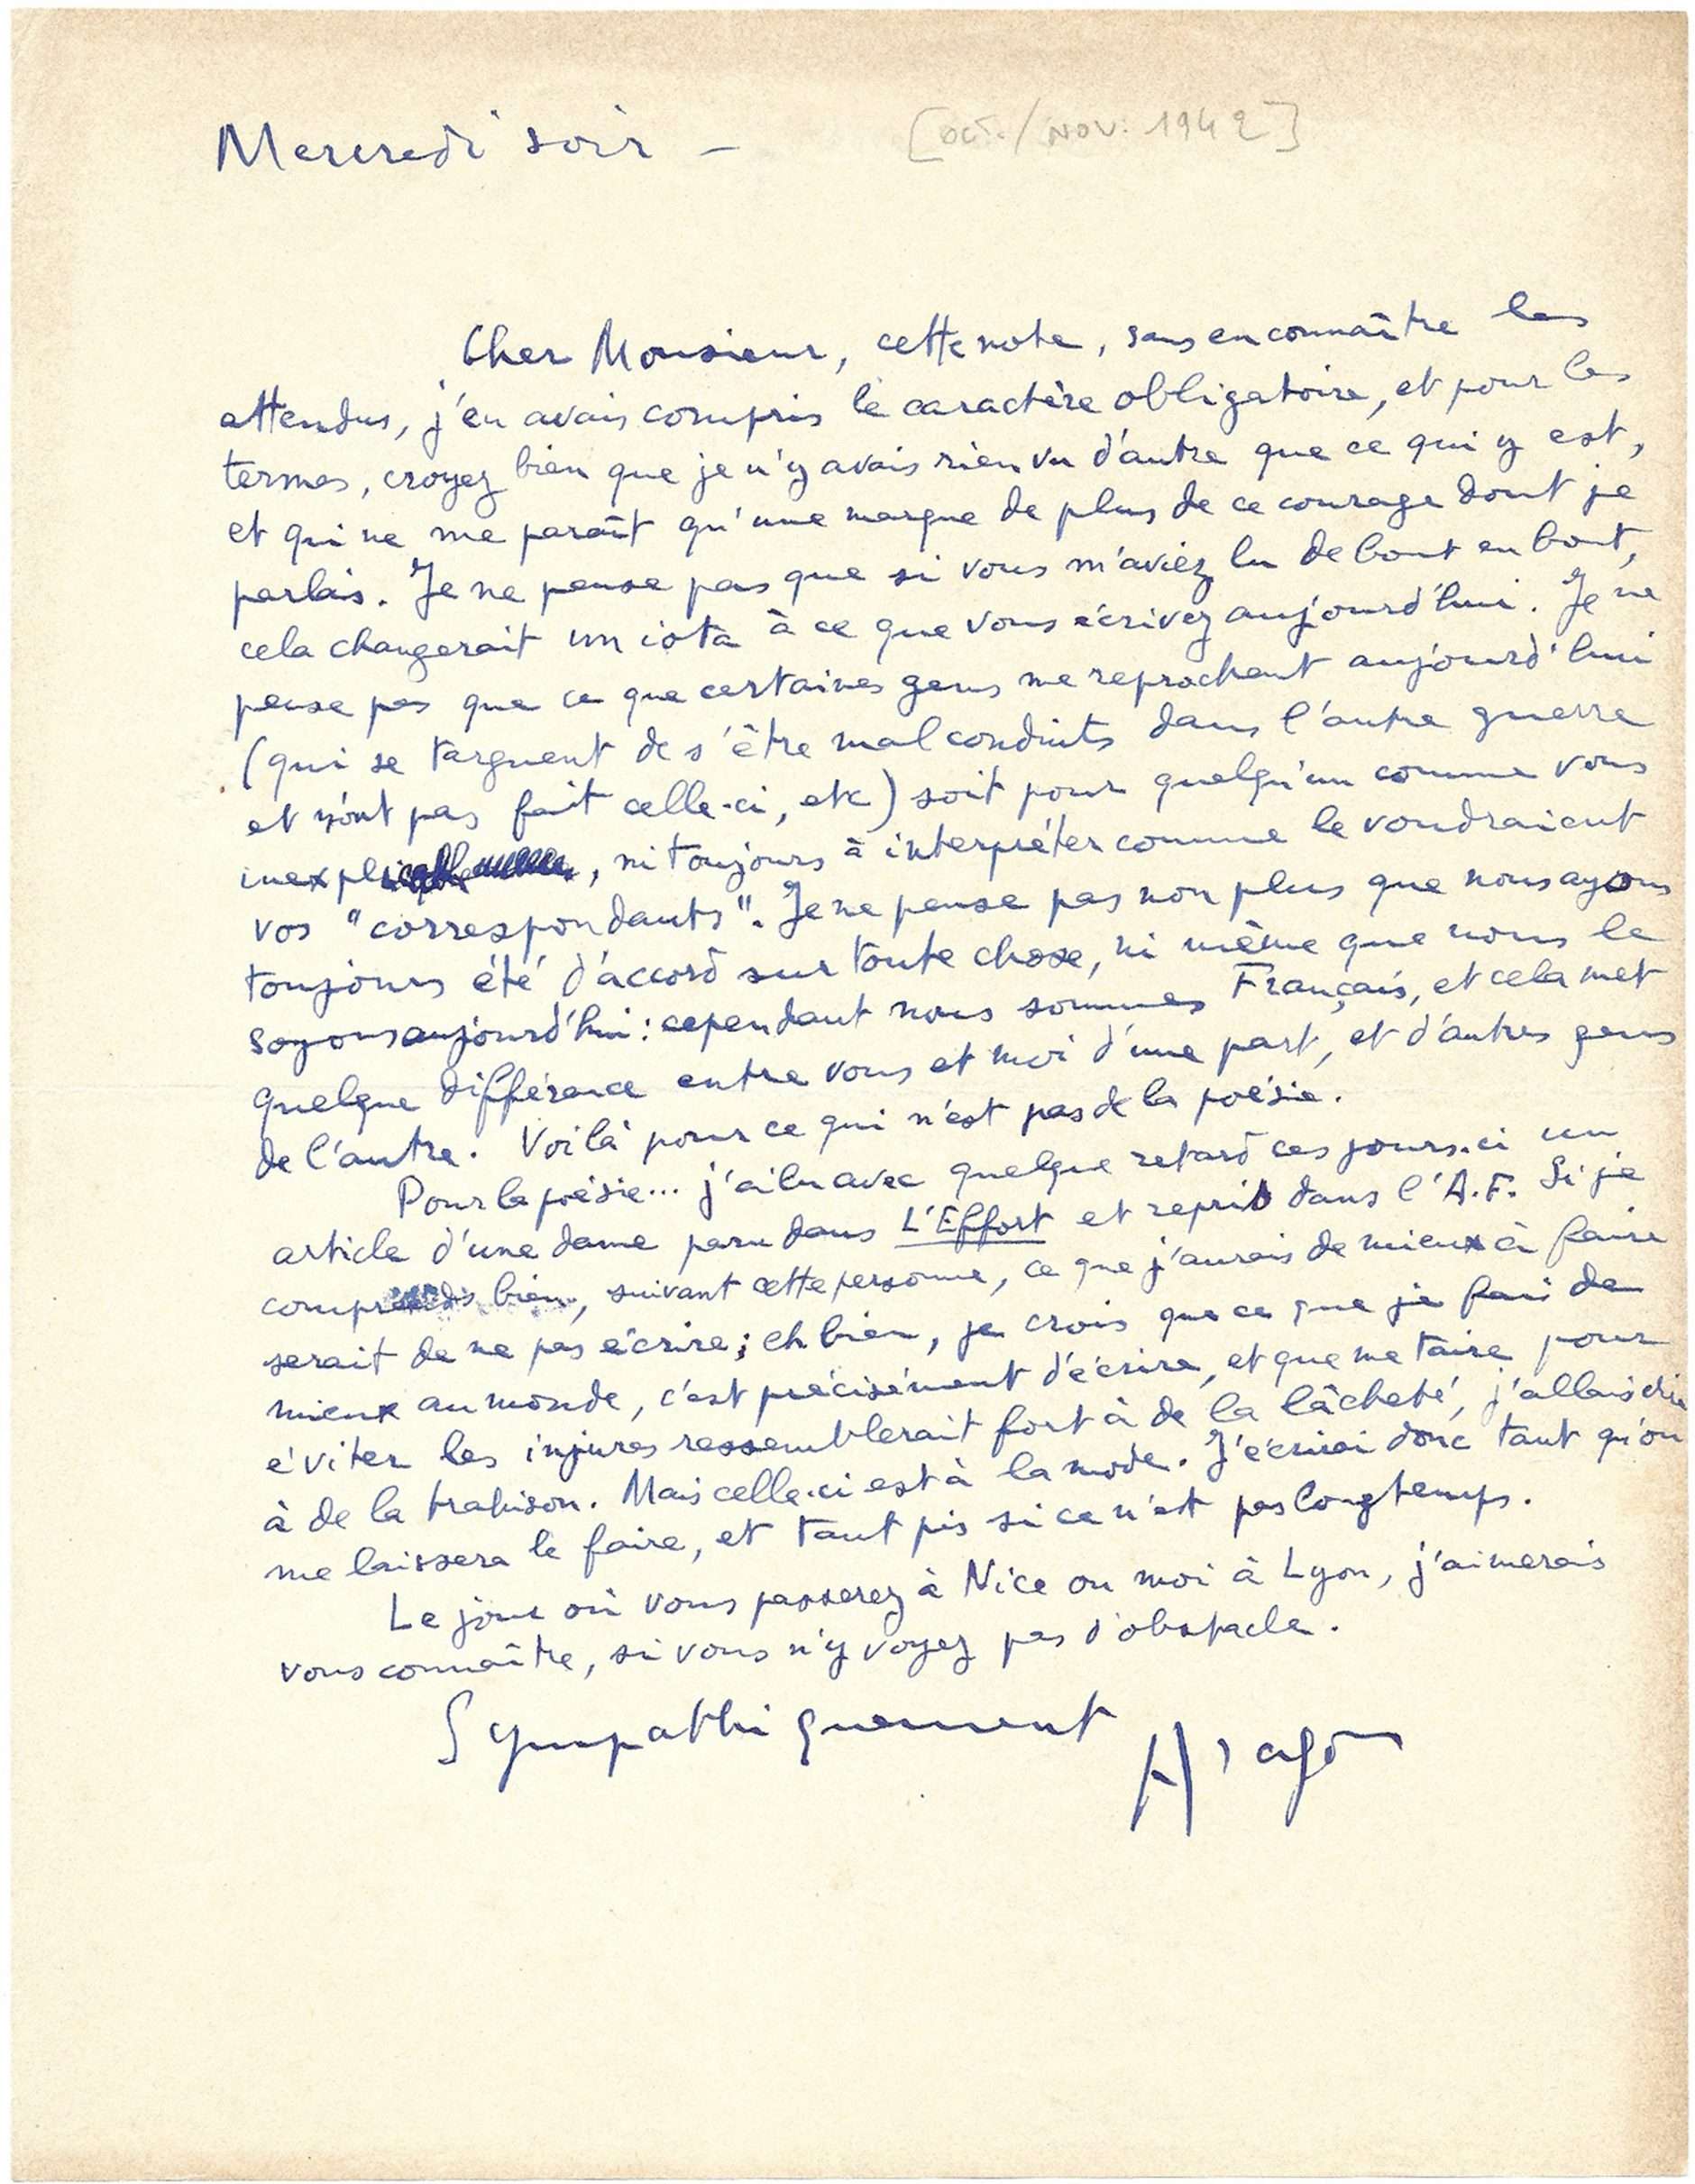 Mercredi soir –
[oct./nov. 1942]
Cher Monsieur, cette note, sans en connaître les
attendus, j'en avais compris le caractère obligatoire, et pour les
termes, croyez bien que je n'y avais rien vu d'autre que ce qui y est,
et qui ne me paraît qu'une marque de plus de ce courage dont je
parlais. Je ne pense pas que si vous m'aviez lu de bout en bout,
cela changerait un iota à ce que vous écrivez aujourd'hui. Je ne
pense pas que ce que certaines gens me reprochent aujourd'hui
(qui se targuent de s'être mal conduits dans l'autre guerre
et n'ont pas fait celle-ci, etc) soit pour quelqu'un comme vous
inexplicable, ni toujours à interpréter comme le voudraient
vos "correspondants". Je ne pense pas non plus que nous ayons
toujours été d'accord sur toute chose, ni même que nous le
soyons aujourd'hui : cependant nous sommes Français, et cela met
quelque différence entre vous et moi d'une part, et d'autres gens
de l'autre. Voilà pour ce qui n'est pas de la poésie.
Pour la poésie... j'ai lu avec quelque retard ces jours-ci un
article d'une dame paru dans L'Effort et repris dans l'A.F. Si je
comprends bien, suivant cette personne, ce que j'aurais de mieux à faire
serait de ne pas écrire ; eh bien, je crois que ce que je fais de
mieux au monde, c'est précisément d'écrire, et que me taire pour
éviter les injures ressemblerait fort à de la lâcheté, j'allais dire
à de la trahison. Mais celle-ci est à la mode. J'écrirai donc tant qu'on
me laissera le faire, et tant pis si ce n'est pas longtemps.
Le jour où vous passerez à Nice ou moi à Lyon, j'aimerais
vous connaître, si vous n'y voyez pas d'obstacle.
Sympathiquement
Aragon